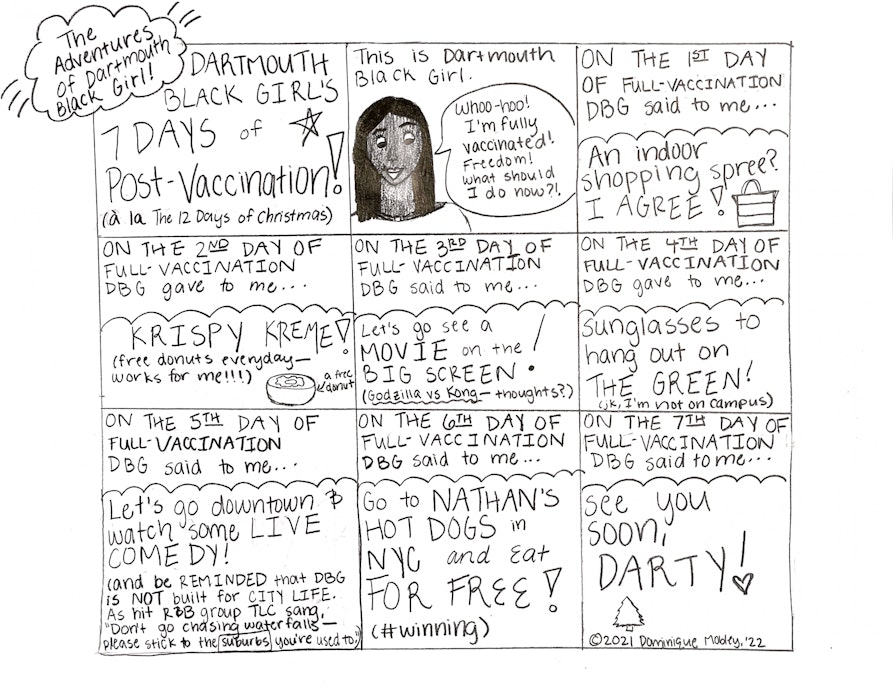 The
Adventures
of Dartmouth
Black Girl!
DARTMOUTH
BLACK GIRL'S
7 DAYS of
Post-Vaccination!
(à la The 12 Days of Christmas)
This is Dartmouth
Black Girl.
Whoo-hoo!
I'm fully
vaccinated!
Freedom!
What should
I do now?!
ON THE 1ST DAY
OF FULL-VACCINATION
DBG said to me...
An indoor
shopping spree?
I AGREE!
ON THE 2ND DAY OF
FULL-VACCINATION
DBG gave to me...
KRISPY KREME!
(free donuts everyday—
works for me!!!)
a free
donut
ON THE 3RD DAY OF
FULL-VACCINATION
DBG said to me...
Let's go see a
MOVIE on the
BIG SCREEN!
(Godzilla vs Kong— thoughts?)
ON THE 4TH DAY OF
FULL-VACCINATION
DBG gave to me...
sunglasses to
hang out on
THE GREEN!
(jk, I'm not on campus)
ON THE 5TH DAY OF
FULL-VACCINATION
DBG said to me...
Let's go downtown &
watch some LIVE
COMEDY!
(and be REMINDED that DBG
is NOT built for CITY LIFE.
As hit R&B group TLC sang,
"Don't go chasing waterfalls—
please stick to the suburbs you're used to")
ON THE 6TH DAY OF
FULL-VACCINATION
DBG said to me...
Go to NATHAN'S
HOT DOGS in
NYC and eat
FOR FREE!
(#winning)
ON THE 7TH DAY OF
FULL-VACCINATION
DBG said to me...
see you
soon,
DARTY!
©2021 Dominique Mobley,'22